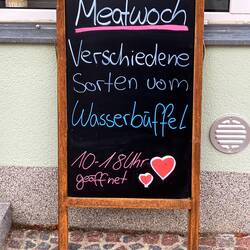 Meatwoch
Verschiedene
Sorten vom
Wasserbüffel
10-18Uhr
geöffnet